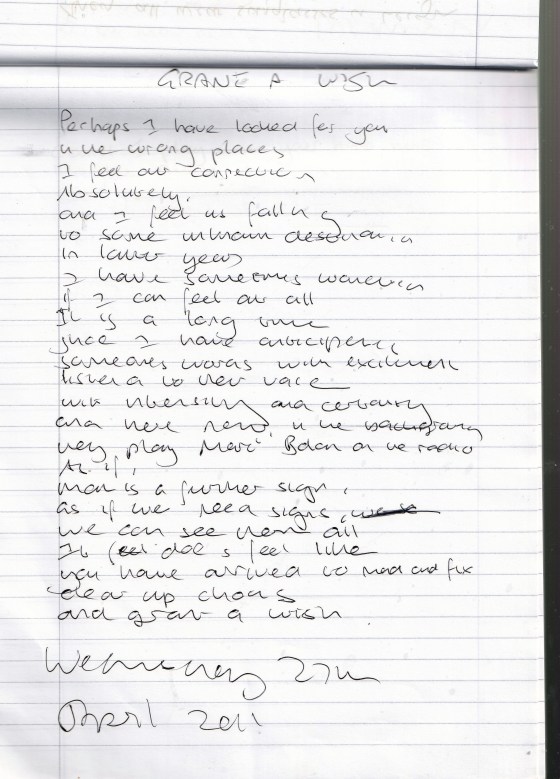 GRANT A WISH
Perhaps I have looked for you
in the wrong places
I feel our connection
Absolutely,
and I feel us falling
to some unknown
in later years
I have sometimes wondered
if I can feel at all
It is a long time
since I have anticipated
someones words with excitement
listened to their voice
with intensity and certainty
and here now, in the background
they play Marc Bolan on the radio
As if,
that is a further sign,
as if we need signs,
we can see them all
It does feel like
you have arrived to mend and fix
clear up chaos
and grant a wish.
Wednesday 27th
April 2011